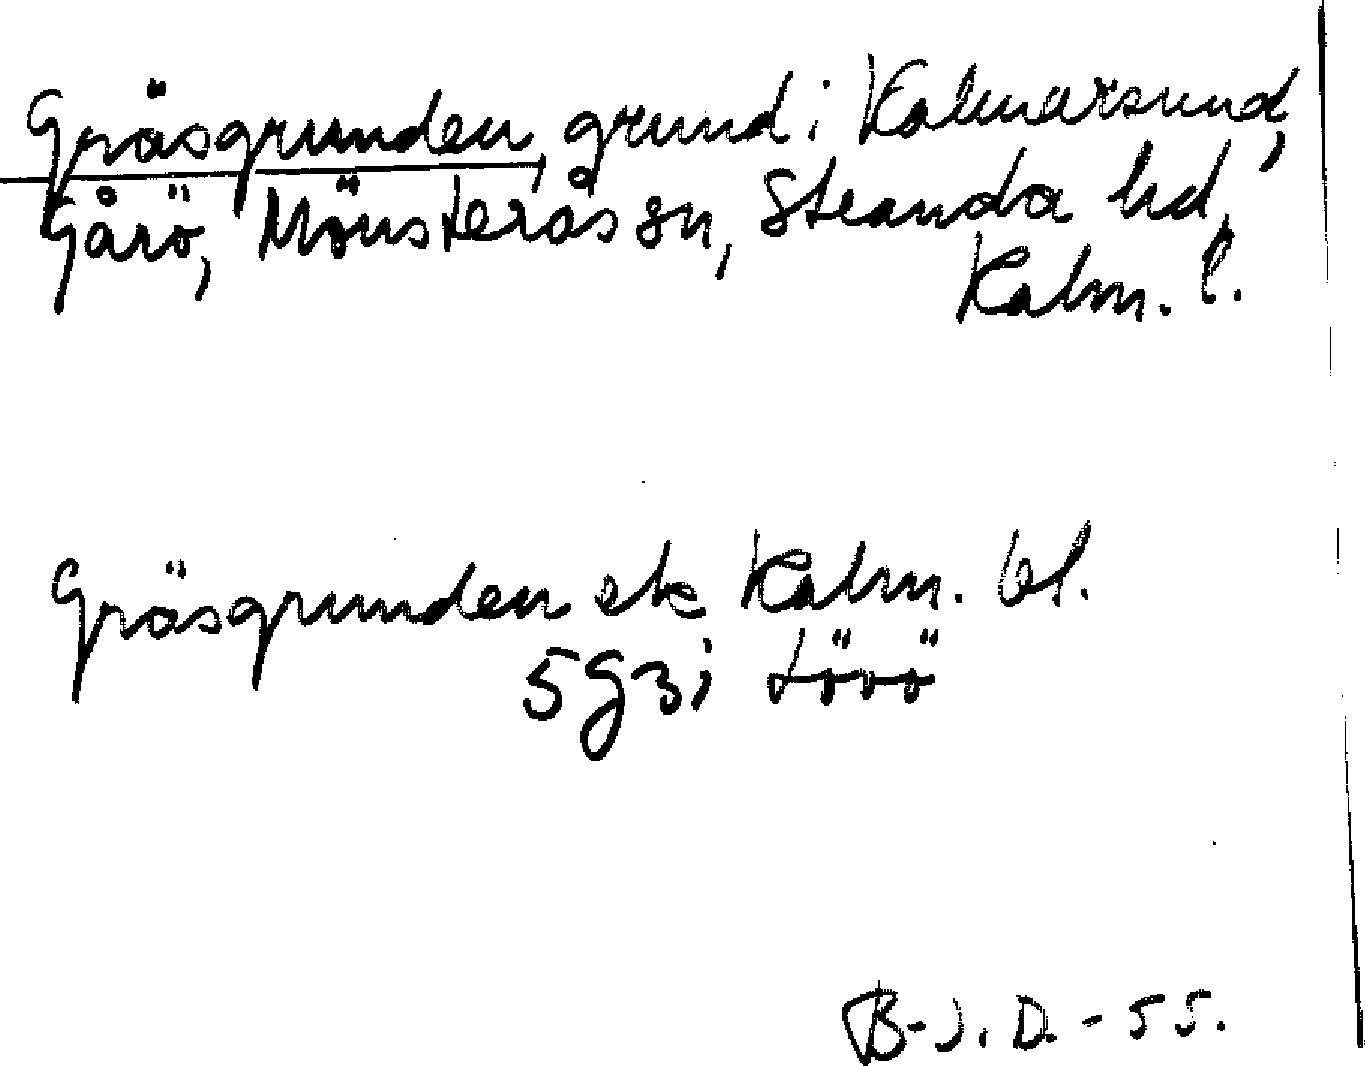 Gräsgrunden, grund i Kalmarsund,
Gårö, Mönsterås sn, Stranda hd,
Kalm. l.
Gräsgrunden ek Kalm. bl.
5g3i Lövö
B-J. D. - 55.